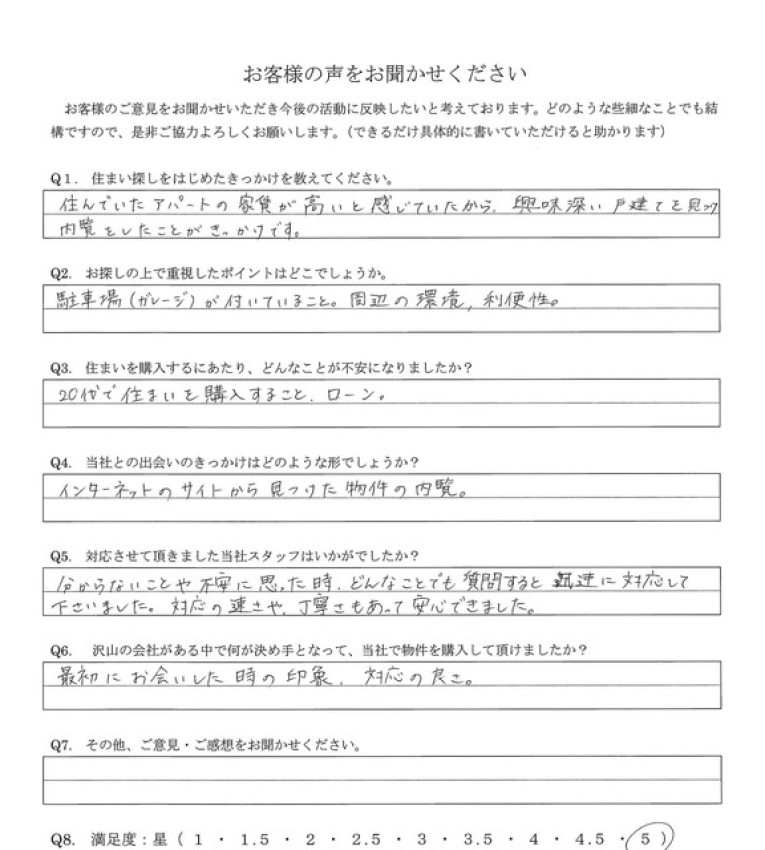 お客様の声をお聞かせください
お客様のご意見をお聞かせいただき今後の活動に反映したいと考えております。どのような些細なことでも結
構ですので、是非ご協力よろしくお願いします。（できるだけ具体的に書いていただけると助かります）
Q1. 住まい探しをはじめたきっかけを教えてください。
住んでいたアパートの家賃が高いと感じていたから、興味深い戸建てを見つけ
内覧をしたことがきっかけです。
Q2. お探しの上で重視したポイントはどこでしょうか。
駐車場(ガレージ)が付いていること。周辺の環境,利便性。
Q3. 住まいを購入するにあたり、どんなことが不安になりましたか？
20代で住まいを購入すること、ローン。
Q4. 当社との出会いのきっかけはどのような形でしょうか？
インターネットのサイトから見つけた物件の内覧。
Q5. 対応させて頂きました当社スタッフはいかがでしたか？
分からないことや不安に思った時、どんなことでも質問すると迅速に対応して
下さいました。対応の速さや、丁寧さもあって安心できました。
Q6. 沢山の会社がある中で何が決め手となって、当社で物件を購入して頂けましたか？
最初にお会いした時の印象、対応の良さ。
Q7. その他、ご意見・ご感想をお聞かせください。
Q8. 満足度：星（ 1 ・ 1.5 ・ 2 ・ 2.5 ・ 3 ・ 3.5 ・ 4 ・ 4.5 ・ 5 ）